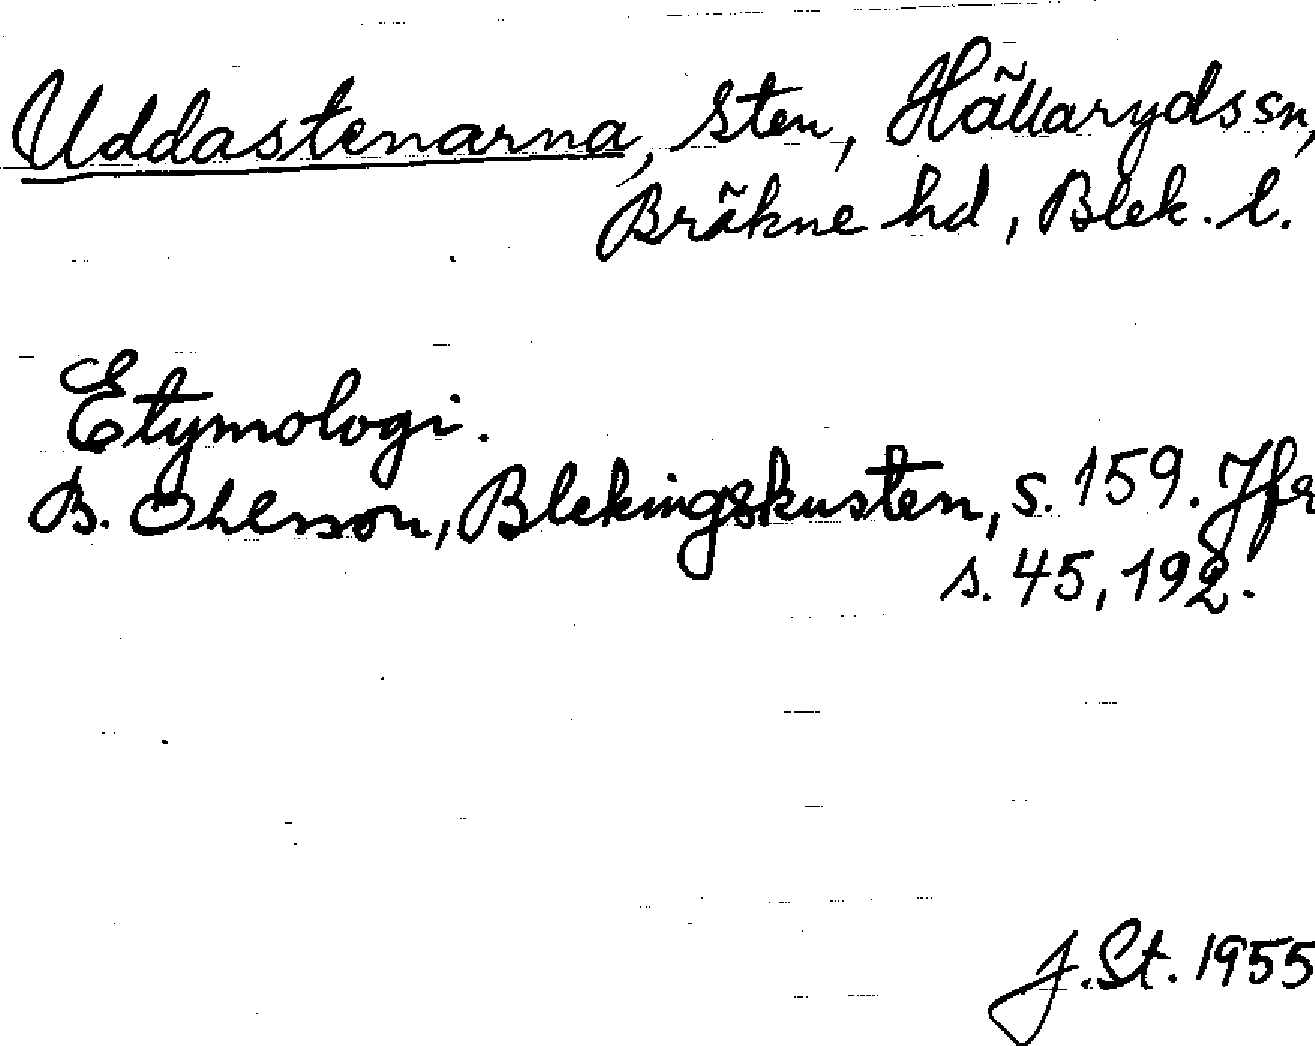 Uddastenarna, Sten, Hällaryds sn,
Bräkne hd, Blek. l.
Etymologi.
B. Ohlsson, Blekingskusten, s. 159. Jfr
s. 45, 192.
J. St. 1955